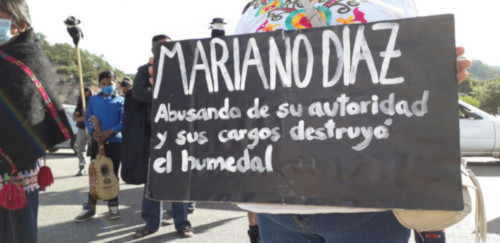 MARIANO DIAZ
Abusando de su autoridad
y sus cargos destruyó
el humedal